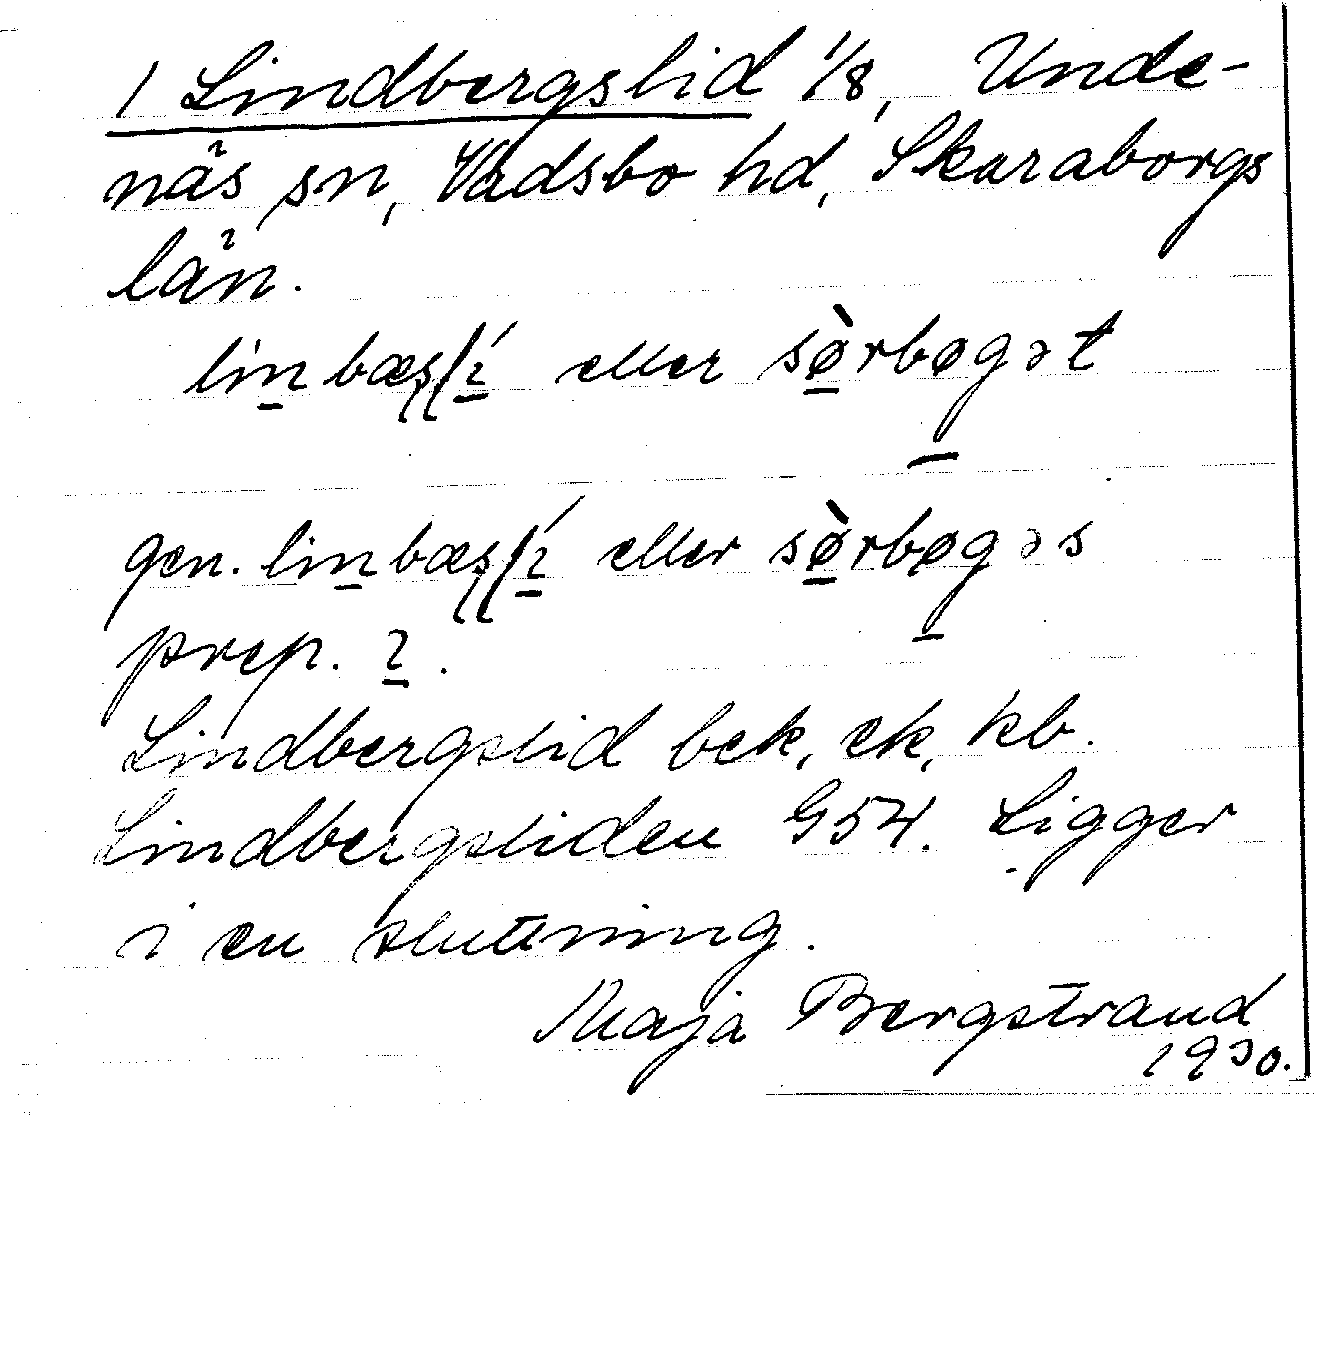 1 Lindbergslid 1/8, Unde-
näs sn, Vadsbo hd, Skaraborgs
län.
linbæsḷí eller sø̀rbøgət
gen. linbæsḷí eller sø̀rbøgəs
prep. ı.
Lindbergslid bek, ek, kb.
Lindbergsliden G54. Ligger
i en sluttning.
Maja Bergstrand
1930.